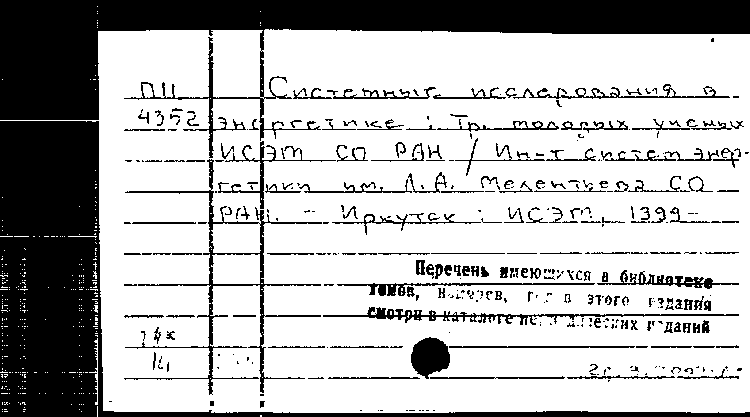 П11 Системные исследования в
4352 энергетике : Тр. молодых ученых
ИСЭМ СО РАН / Ин-т систем энер-
гетики им. Л.А. Мелентьева СО
РАН. - Иркутск : ИСЭМ, 1999-
Перечень имеющихся в библиотеке
томов, номеров, год а этого издания
смотри в каталоге периодических изданий